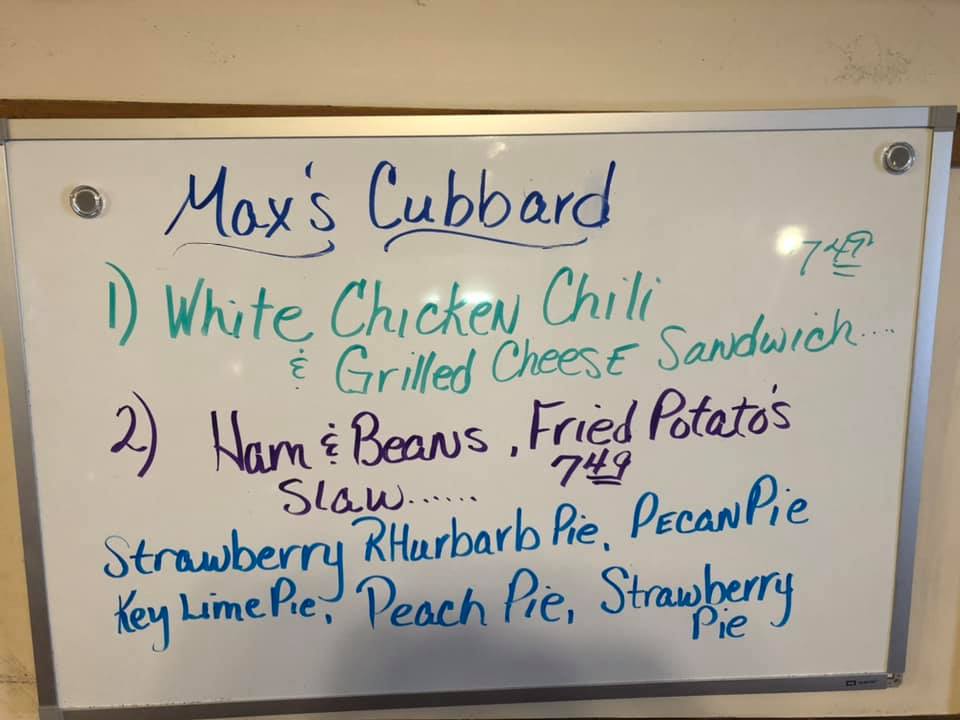 Max's Cubbard
7 49
1) White Chicken Chili
& Grilled Cheese Sandwich....
2) Ham & Beans, Fried Potato's
Slaw...... 7 49
Strawberry RHurbarb Pie, Pecan Pie
Key Lime Pie, Peach Pie, Strawberry
Pie